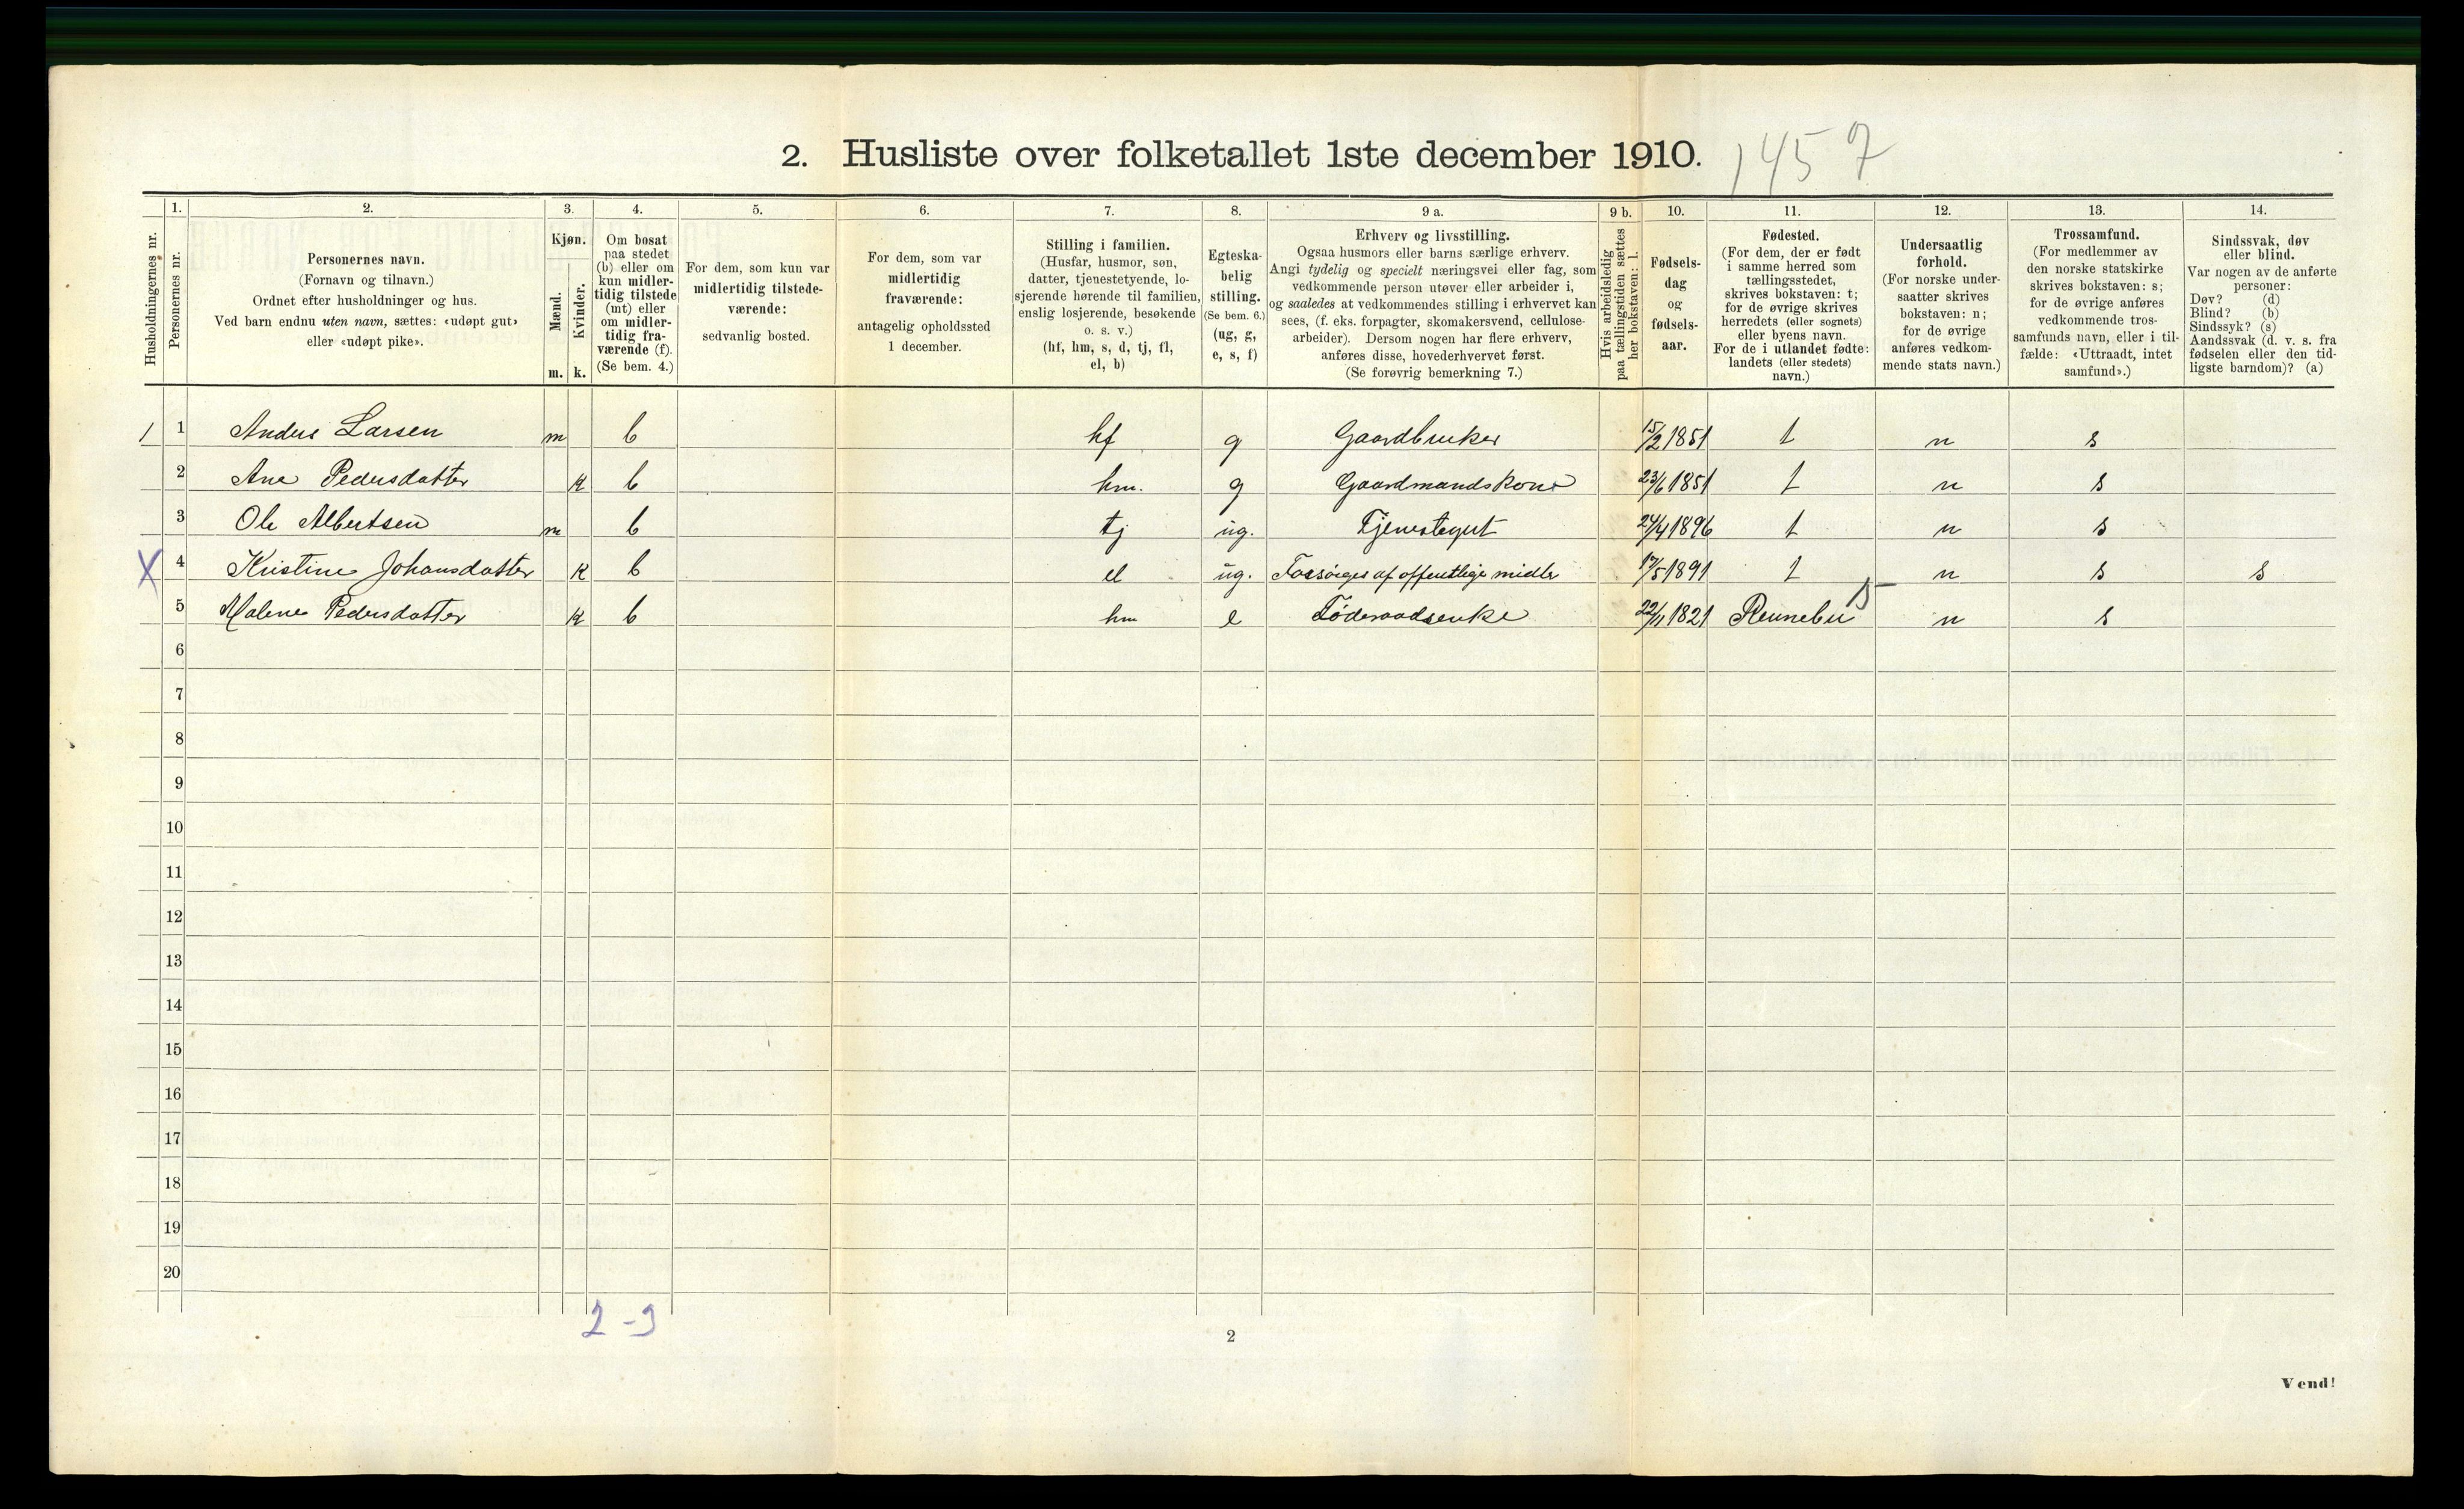 2. Husliste over folketallet 1ste december 1910. 1457
1. 2. 3. 4. 5. 6. 7. 8. 9 a. 9 b. 10. 11. 12. 13. 14.
Husholdningernes nr.
Personernes nr.
Personernes navn.
(Fornavn og tilnavn.)
Ordnet efter husholdninger og hus.
Ved barn endnu uten navn, sættes: «udøpt gut»
eller «udøpt pike».
Kjøn.
Mænd.
Kvinder.
m. k.
Om bosat
paa stedet
(b) eller om
kun midler-
tidig tilstede
(mt) eller
om midler-
tidig fra-
værende (f).
(Se bem. 4.)
For dem, som kun var
midlertidig tilstede-
værende:
sedvanlig bosted.
For dem, som var
midlertidig
fraværende:
antagelig opholdssted
1 december.
Stilling i familien.
(Husfar, husmor, søn,
datter, tjenestetyende, lo-
sjerende hørende til familien,
enslig losjerende, besøkende
o. s. v.)
(hf, hm, s, d, tj, fl,
el, b)
Egteska-
belig
stilling.
(Se bem. 6.)
(ug, g,
e, s, f)
Erhverv og livsstilling.
Ogsaa husmors eller barns særlige erhverv.
Angi tydelig og specielt næringsvei eller fag, som
vedkommende person utøver eller arbeider i,
og saaledes at vedkommendes stilling i erhvervet kan
sees, (f. eks. forpagter, skomakersvend, cellulose-
arbeider). Dersom nogen har flere erhverv,
anføres disse, hovederhvervet først.
(Se forøvrig bemerkning 7.)
Hvis arbeidsledig
paa tællingstiden sættes
her bokstaven: l.
Fødsels-
dag
og
fødsels-
aar.
Fødested.
(For dem, der er født
i samme herred som
tællingsstedet,
skrives bokstaven: t;
for de øvrige skrives
herredets (eller sognets)
eller byens navn.
For de i utlandet fødte:
landets (eller stedets)
navn.)
Undersaatlig
forhold.
(For norske under-
saatter skrives
bokstaven: n;
for de øvrige
anføres vedkom-
mende stats navn.)
Trossamfund.
(For medlemmer av
den norske statskirke
skrives bokstaven: s;
for de øvrige anføres
vedkommende tros-
samfunds navn, eller i til-
fælde: «Uttraadt, intet
samfund».)
Sindssvak, døv
eller blind.
Var nogen av de anførte
personer:
Døv? (d)
Blind? (b)
Sindssyk? (s)
Aandssvak (d. v. s. fra
fødselen eller den tid-
ligste barndom)? (a)
1 1 Anders Larsen m b hf g Gaardbruker 15/2 1851 t n s
2 Ane Pedersdatter k b hm. g Gaardmandskone 23/6 1851 t n s
3 Ole Albertsen m b tj ug. Tjenestegut 24/4 1896 t n s
X 4 Kristine Johansdatter k b el ug. Forsørges af offentlige midler 17/5 1891 t n s s
5 Malene Pedersdatter k b hm e Føderaadsenke 22/11 1821 Rennebu 15 n s
6
7
8
9
10
11
12
13
14
15
16
17
18
19
20
2-3
2
Vend!